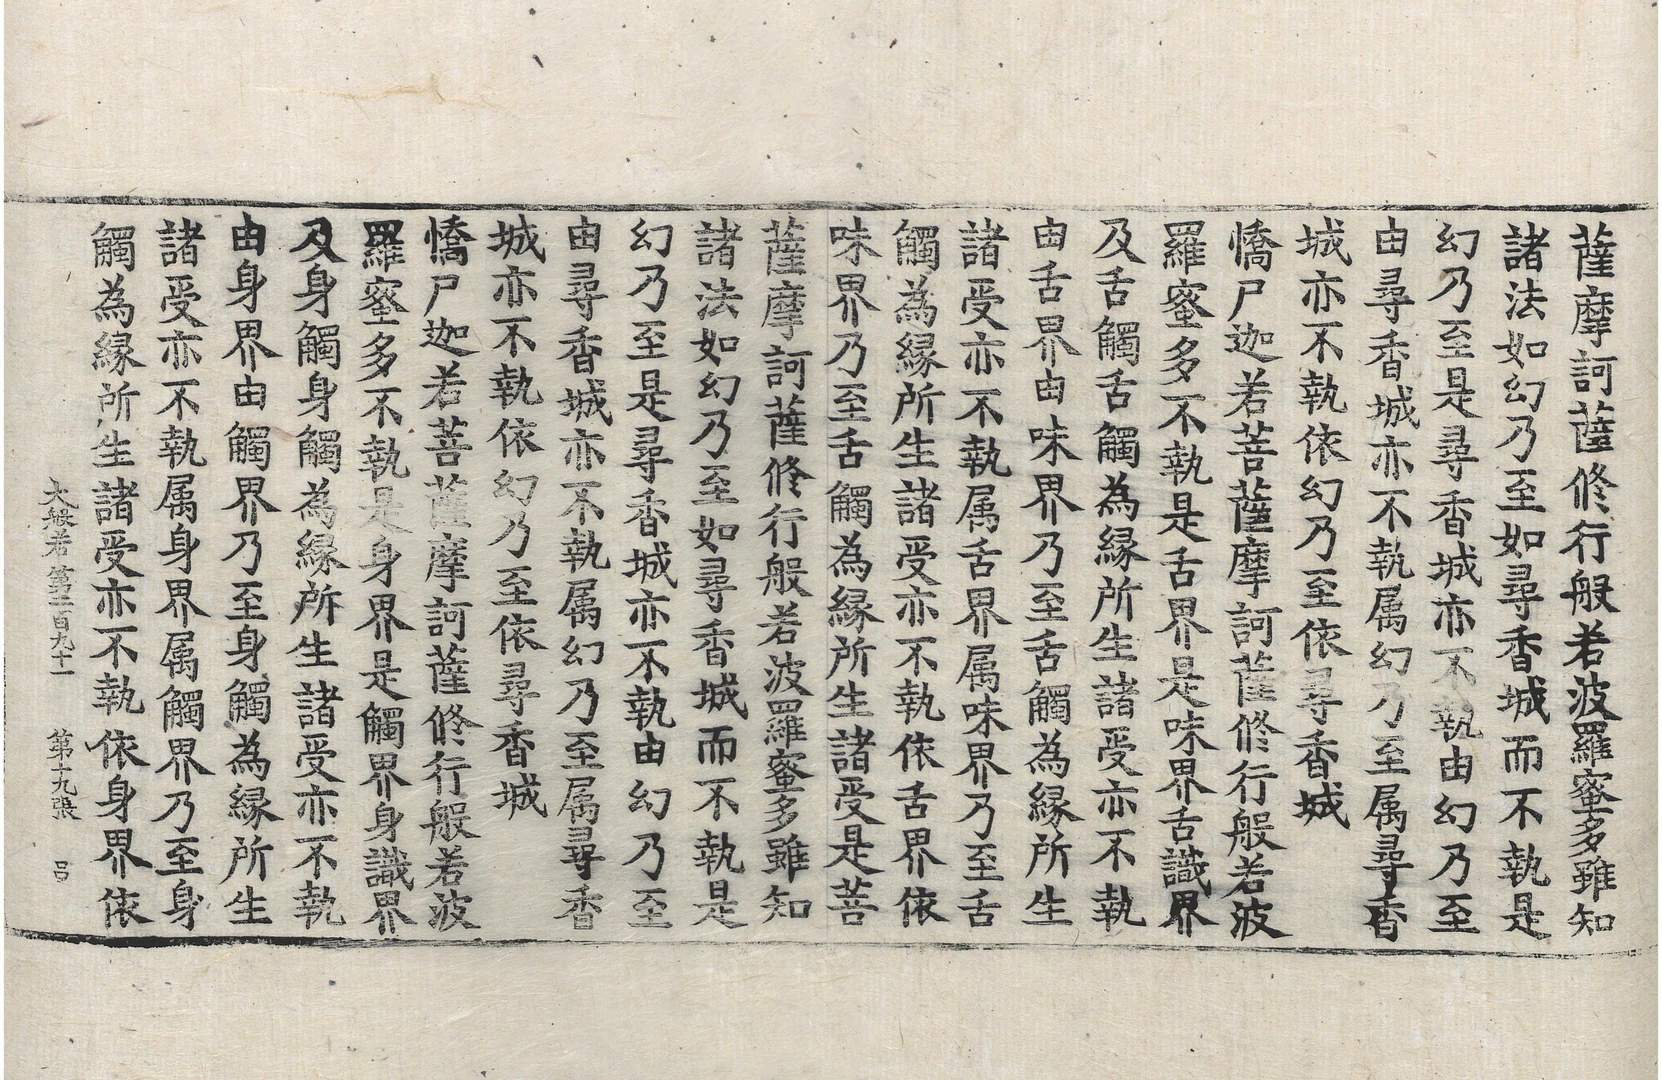 薩摩訶薩修行般若波羅蜜多雖知
諸法如幻乃至如尋香城而不執是
幻乃至是尋香城亦不執由幻乃至
由尋香城亦不執属幻乃至属尋香
城亦不執依幻乃至依尋香城
憍尸迦若菩薩摩訶薩修行般若波
羅蜜多不執是舌界是味界舌識界
及舌觸舌觸為緣所生諸受亦不執
由舌界由味界乃至舌觸為緣所生
諸受亦不執属舌界属味界乃至舌
觸為緣所生諸受亦不執依舌界依
味界乃至舌觸為緣所生諸受是菩
薩摩訶薩修行般若波羅蜜多雖知
諸法如幻乃至如尋香城而不執是
幻乃至是尋香城亦不執由幻乃至
由尋香城亦不執属幻乃至属尋香
城亦不執依幻乃至依尋香城
憍尸迦若菩薩摩訶薩修行般若波
羅蜜多不執是身界是觸界身識界
及身觸身觸為緣所生諸受亦不執
由身界由觸界乃至身觸為緣所生
諸受亦不執属身界属觸界乃至身
觸為緣所生諸受亦不執依身界依
大般若第二百九十一 第十九張 吕